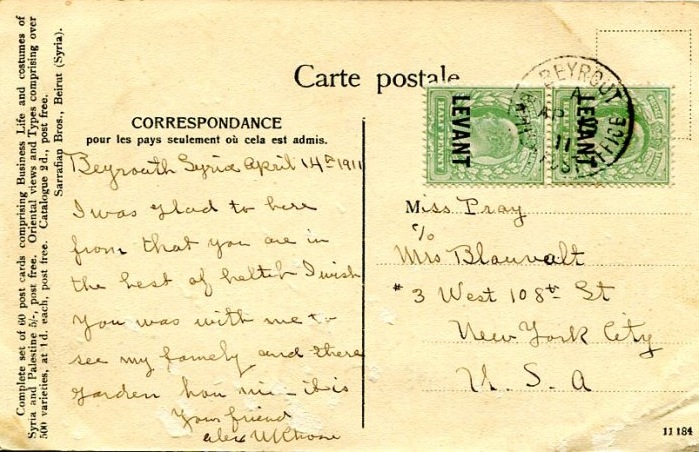 Complete set of 60 post cards comprising Business Life and costumes of
Syria and Palestine 5/-, post free. Oriental views and Types comprising over
500 varieties, at 1d. each, post free. Catalogue 2d., post free.
Sarrafian Bros., Beirut (Syria).
Carte postale
CORRESPONDANCE
pour les pays seulement où cela est admis.
Beyrouth Syria April 14th 1911
I was glad to here
from that you are in
the best of helteh I wish
you was with me to
see my famely and there
garden how nic it is
Your friend
alex
HALF PENNY
LEVANT
LEVANT
BEYROUT
BRITISH POST OFFICE
A
AP
11
Miss Pray
c/o
Mrs Blauvalt
# 3 West 108th St
New York City
U. S. A
11184